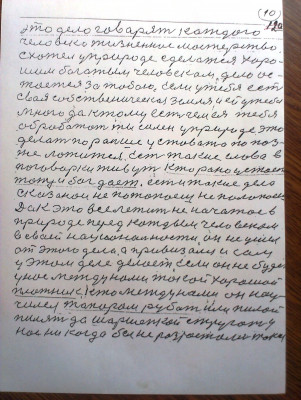 (10)
это дело говарят каждого
человека жизненное мастерство
схотел уприроде сделатся хоро-
шим богатым человекам, дело ос-
тается за тобою, если утебя ест
свая собственическая земля и ей утебя
много да ктому ест чем ея тебя
обработат ты силен уприроде это
делат по ранше устават по поз-
же ложится, ест такие слова в
поговорки живут кто рано устает
тому и бог дает, ест и такие дело
сказано не потопаеш не полопаеш
Как это все летит не начатое в
природе перед каждым человеком
в своей нацыональности он не ушол
от этого дела а привязалс и сам
у этом деле делает, если он не буде
уное между нами такой хорошой
плотник. кто между нами он нау-
чился топаром рубат или пилой
пилят да шаршаткой стругат у
нас никогда бы не розростали такие